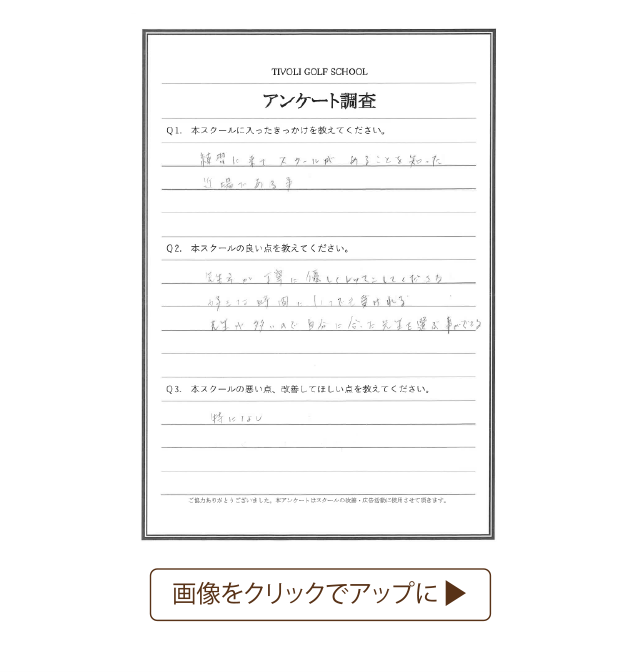 TIVOLI GOLF SCHOOL
アンケート調査
Q1. 本スクールに入ったきっかけを教えてください。
練習に来て スクールが あることを知った
ある事
Q2. 本スクールの良い点を教えてください。
先生方が 丁寧に 優しくレッスンしてくださる
時間に いつでも受けれる
先生が 多いので 自分に 合った先生を選ぶ事ができる
Q3. 本スクールの悪い点、改善してほしい点を教えてください。
特になし
ご協力ありがとうございました。本アンケートはスクールの改善・広告活動に使用させて頂きます。
画像をクリックでアップに ▶